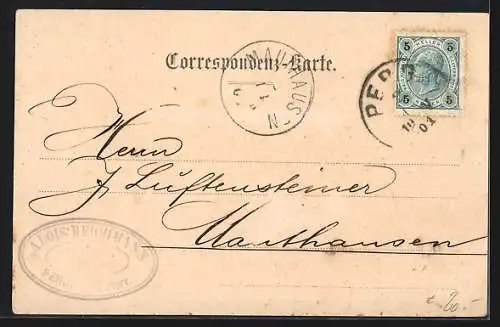 Correspondenz-Karte.
MAUTHAUSEN
PERG
5 5
5 5
01
Herrn
J. Luftensteiner
Mauthausen
ALOIS REICHMANN
PERG
20.-